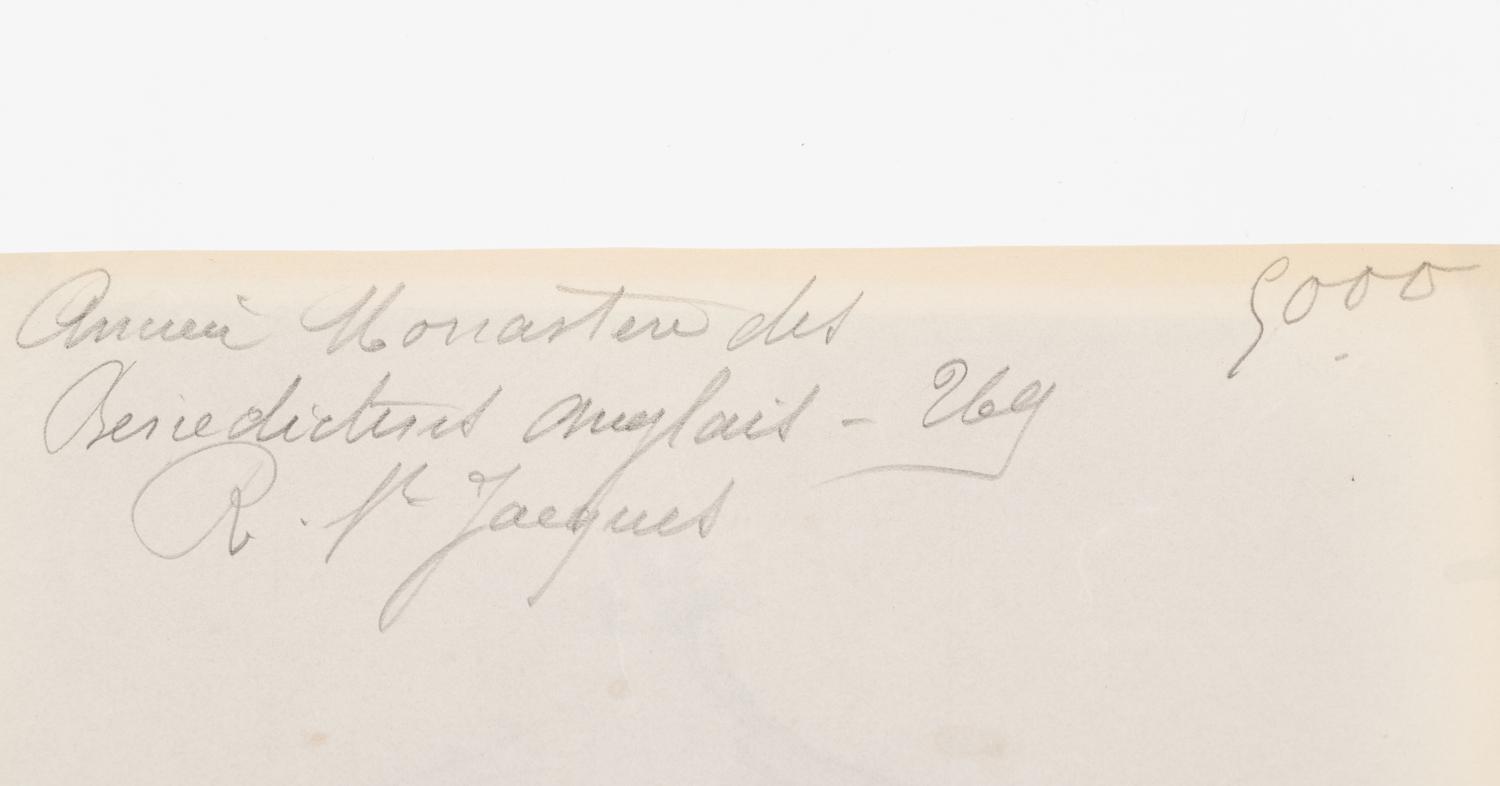 Ancien Monastere des 5000
Benedictins Anglais - 269
R. St Jacques